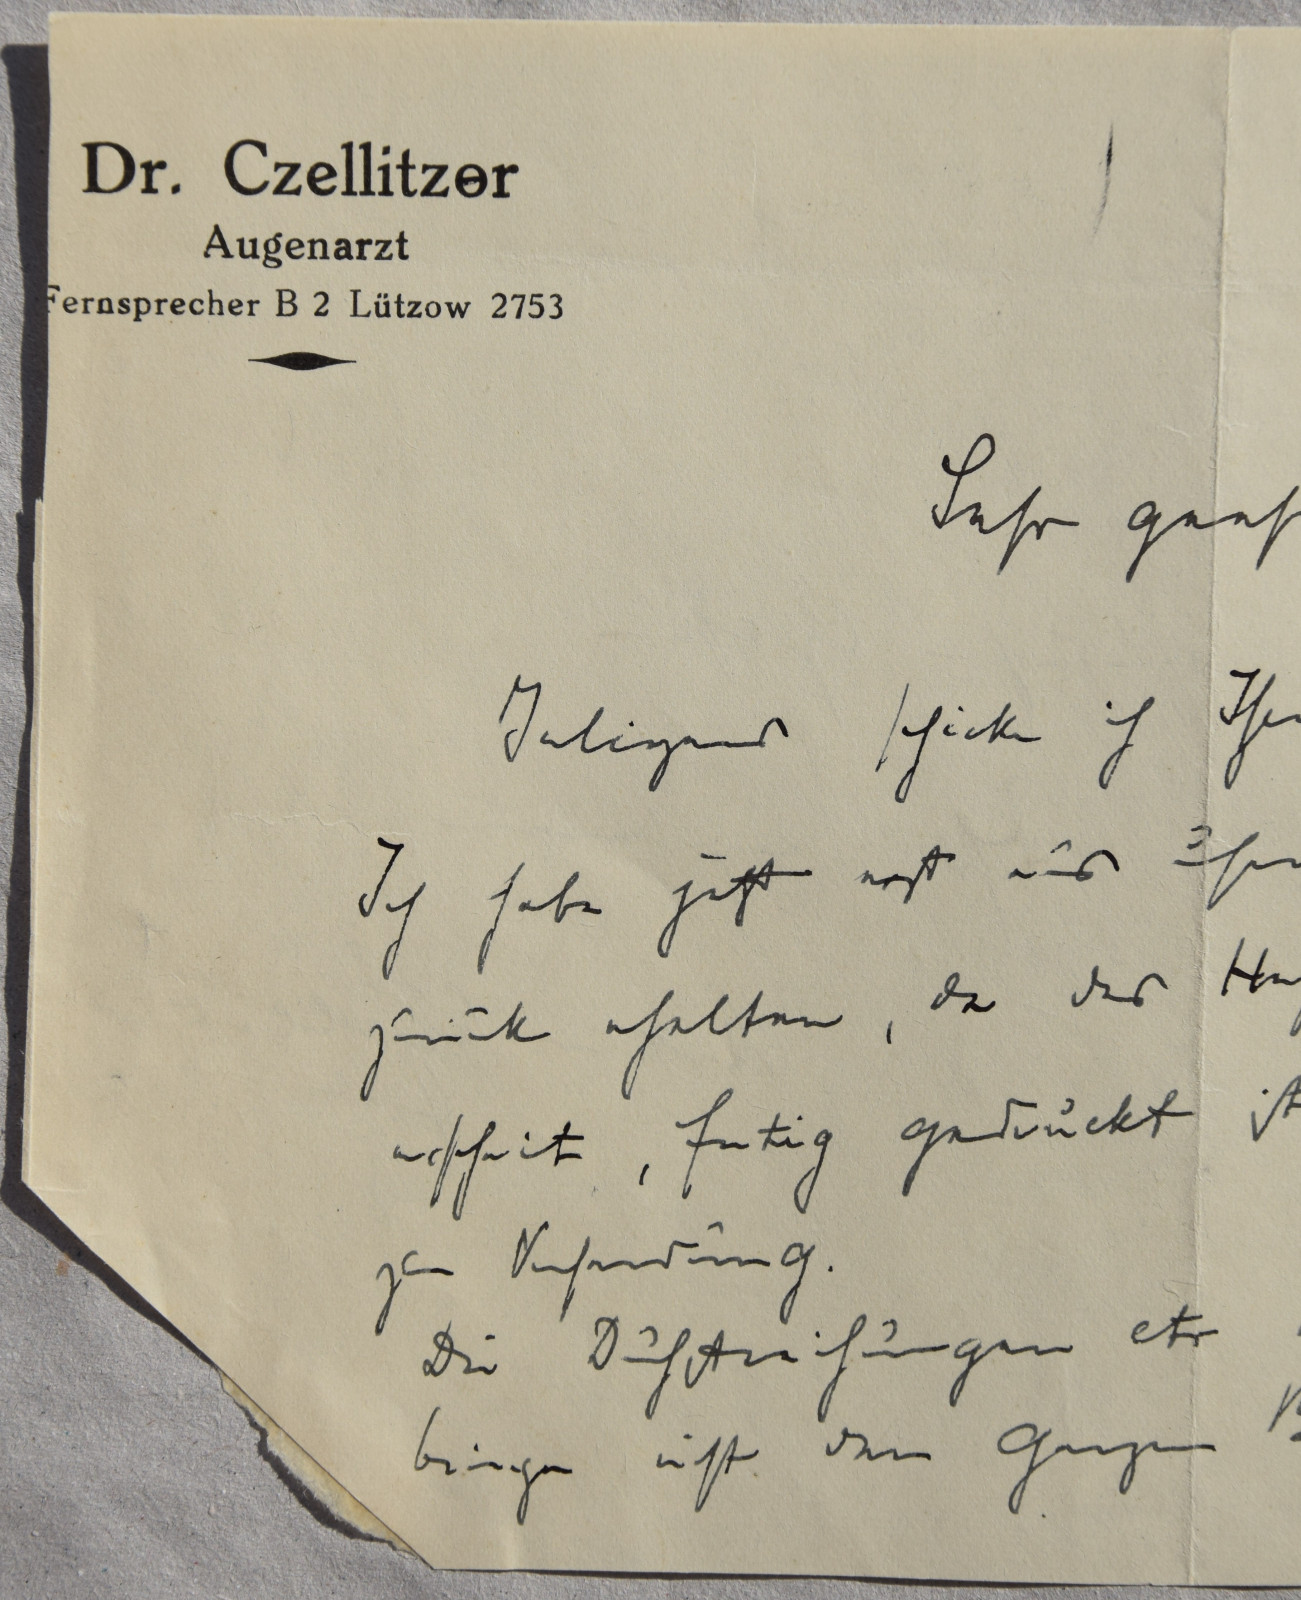 Dr. Czellitzer
Augenarzt
Fernsprecher B 2 Lützow 2753
Sehr geeh
Inliegend schicke ich Ihen
Ich habe jetzt erst aus
zurück erhalten, da das
, fertig gedruckt ist
zur Versendung.
Die etc
bringe nicht den Ganzen